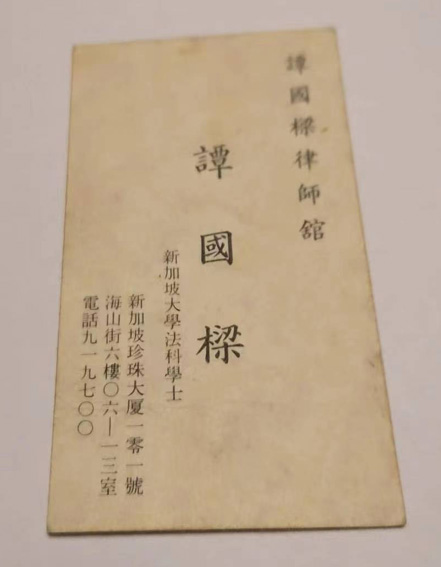 譚國樑律師舘
譚國樑
新加坡大學法科學士
新加坡珍珠大厦一零一號
海山街六樓〇六—一三室
電話九一九七〇〇